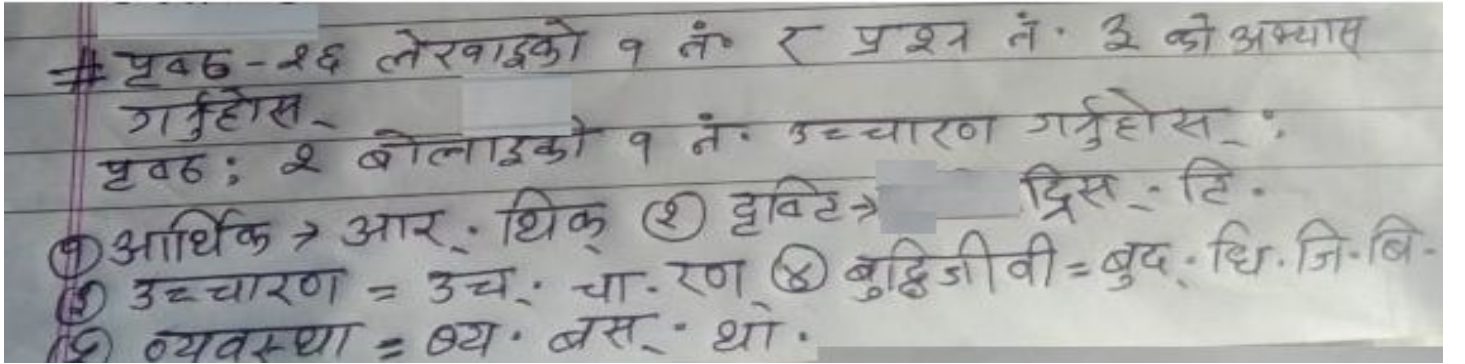 # पृष्ठ - २६ लेखाइको १ नं० र प्रश्न नं. ३ को अभ्यास
गर्नुहोस्
पृष्ठ: २ बोलाइको १ नं. उच्चारण गर्नुहोस् :
① आर्थिक → आर्. थिक् ② दृष्टि → द्रिस्. टि.
③ उच्चारण = उच्. चा. रण् ④ बुद्धिजीवी = बुद्. धि. जि. बि.
व्यवस्था = ब्य. बस्. था.